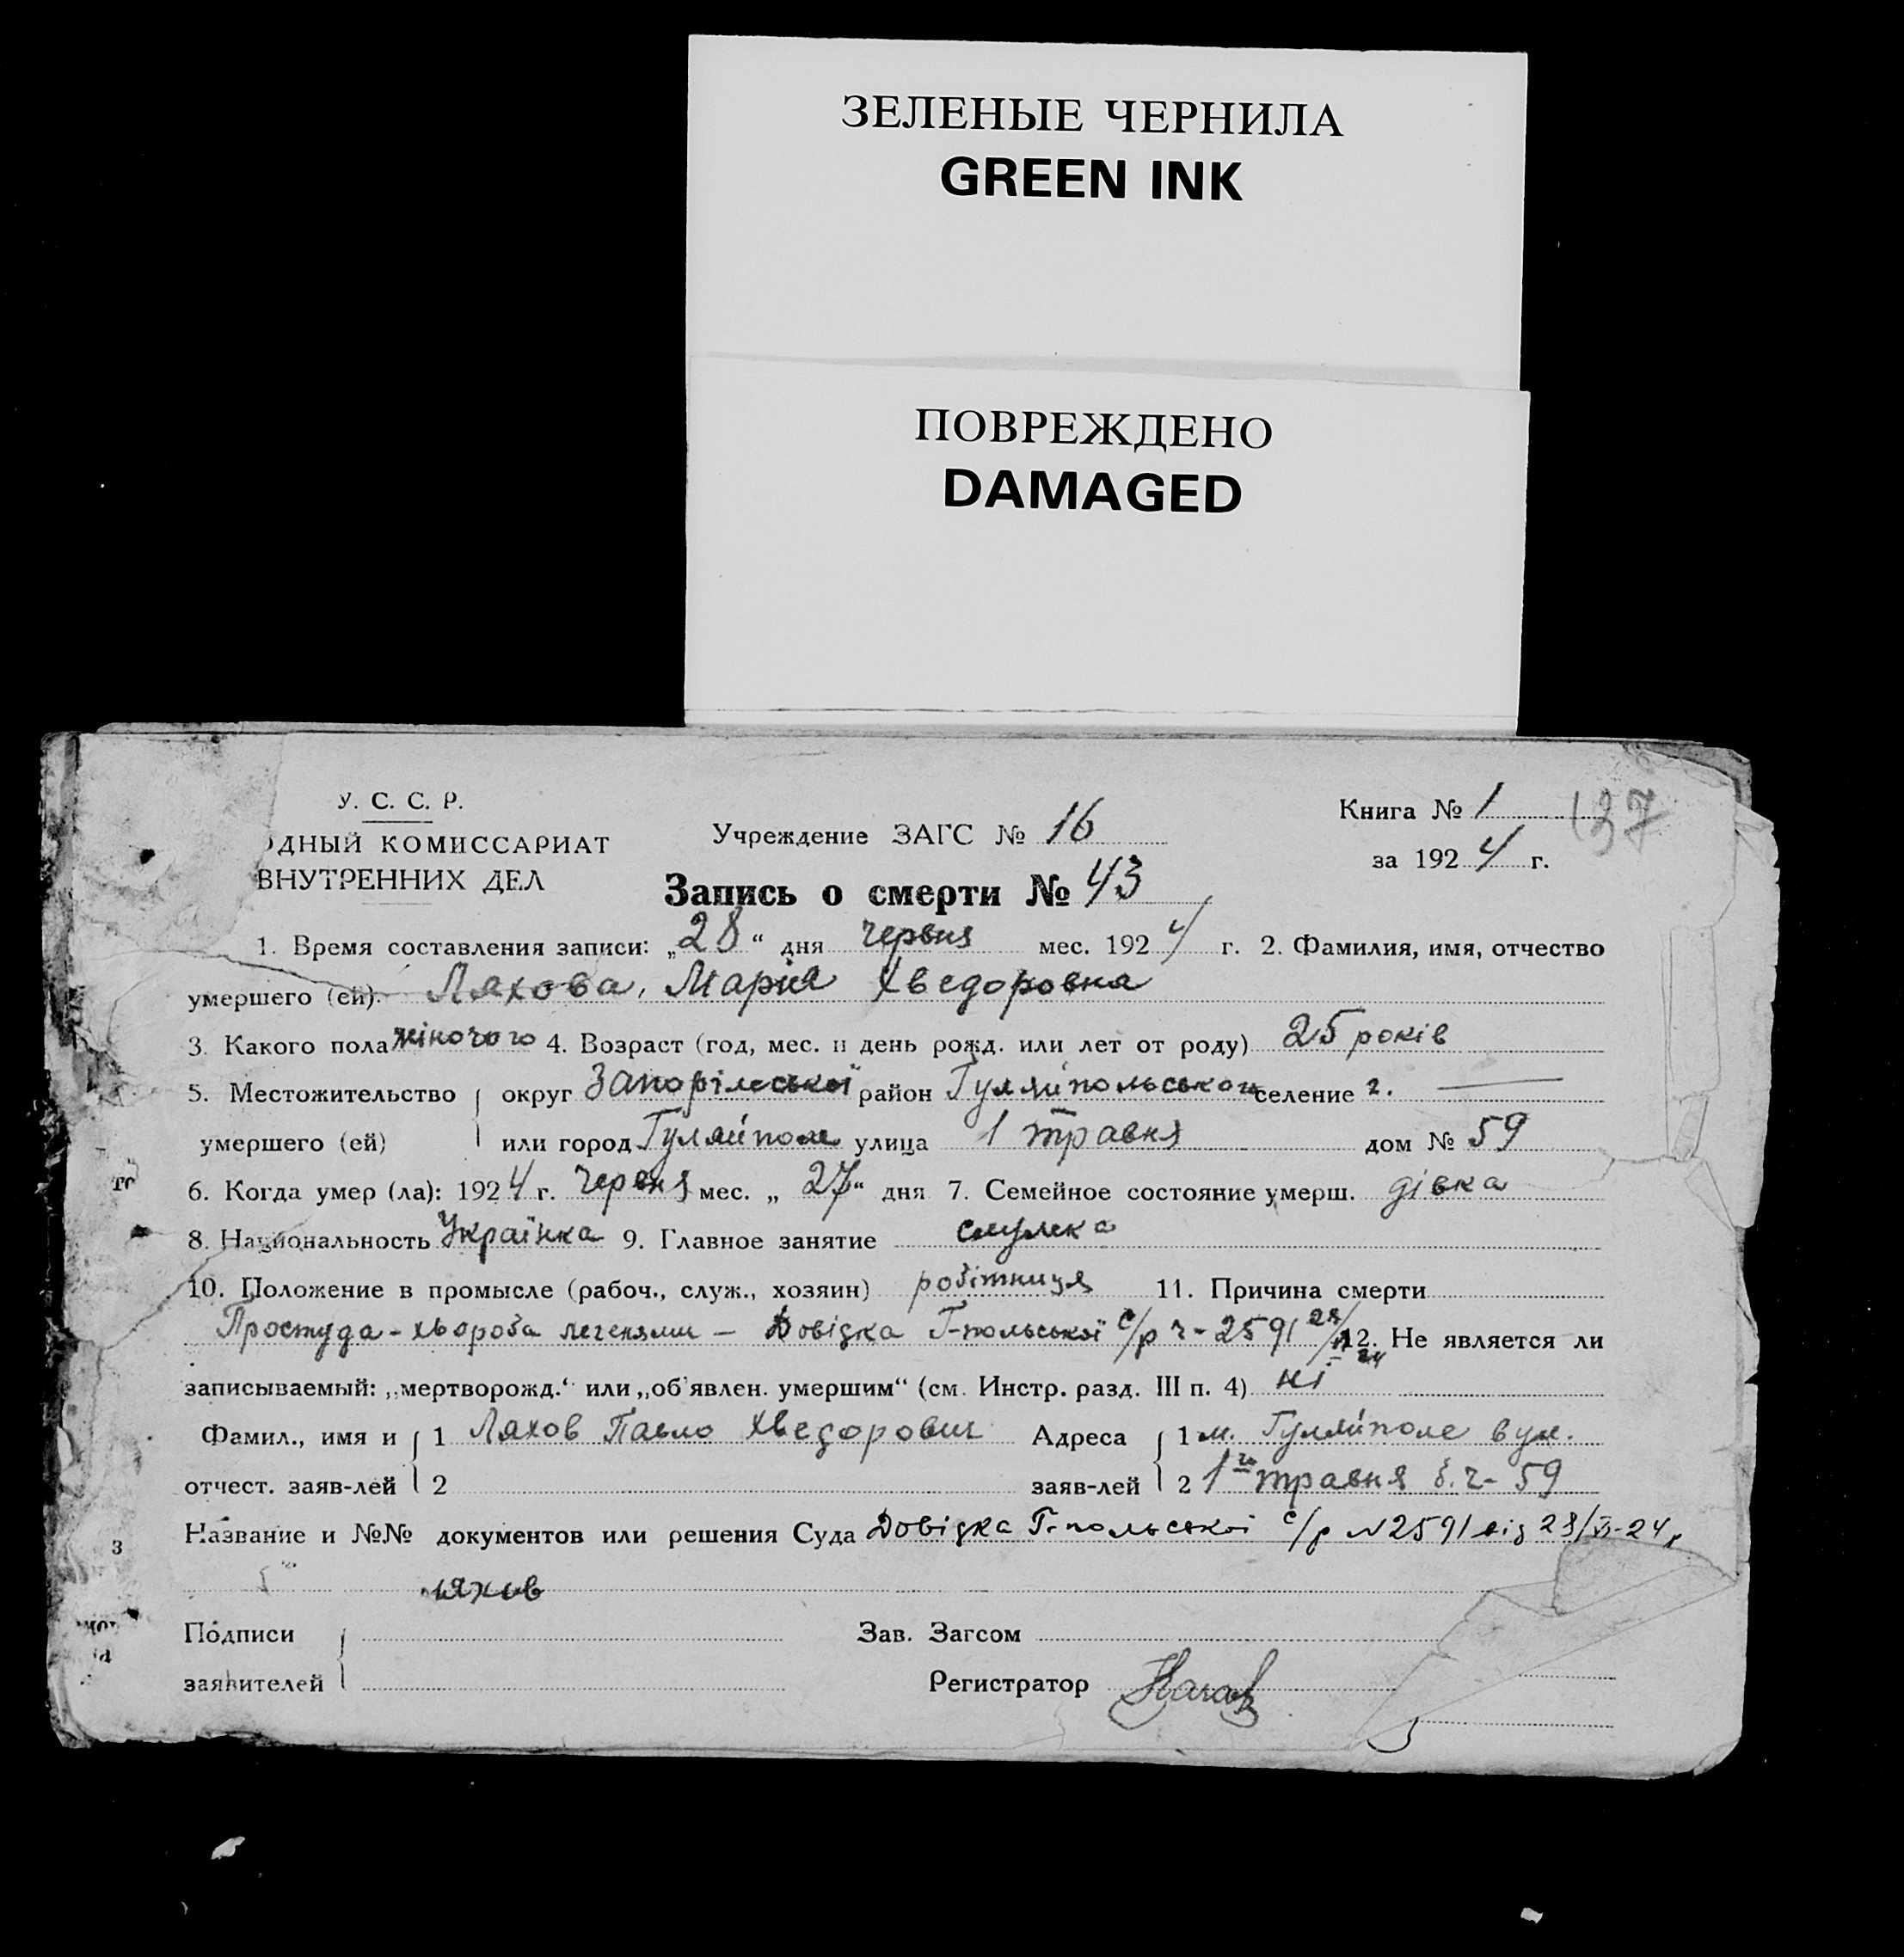 ЗЕЛЕНЫЕ ЧЕРНИЛА
GREEN INK
ПОВРЕЖДЕНО
DAMAGED
У. С. С. Р.
ОДНЫЙ КОМИССАРИАТ
ВНУТРЕННИХ ДЕЛ
Учреждение ЗАГС № 16
Книга № 1
137
за 1924 г.
Запись о смерти № 43
1. Время составления записи: „28“ дня червня мес. 1924 г. 2. Фамилия, имя, отчество
умершего (ей). Ляхова, Марія Хведоровна
3. Какого пола жіночого 4. Возраст (год, мес. и день рожд. или лет от роду) 25 років
5. Местожительство округ Запоріжської район Гуляйпольської селение г. —
умершего (ей) или город Гуляйполе улица 1 травня дом № 59
6. Когда умер (ла): 1924 г. червня мес. „27“ дня 7. Семейное состояние умерш. дівка
8. Национальность Українка 9. Главное занятие
10. Положение в промысле (рабоч., служ., хозяин) робітниця 11. Причина смерти
Простуда - хвороба легенями — Довідка Г-польської с/р ч- 2591 28/VI 24 12. Не является ли
записываемый: „мертворожд.“ или „об'явлен. умершим“ (см. Инстр. разд. III п. 4) ні
Фамил., имя и 1 Ляхов Павло Хведорович Адреса 1 м. Гуляйполе вул.
отчест. заяв-лей 2 заяв-лей 2 1го травня б. ч- 59
Название и №№ документов или решения Суда Довідка Г-польської с/р N2591 від 28/VI-24 р
Ляхов
Подписи Зав. Загсом
заявителей Регистратор